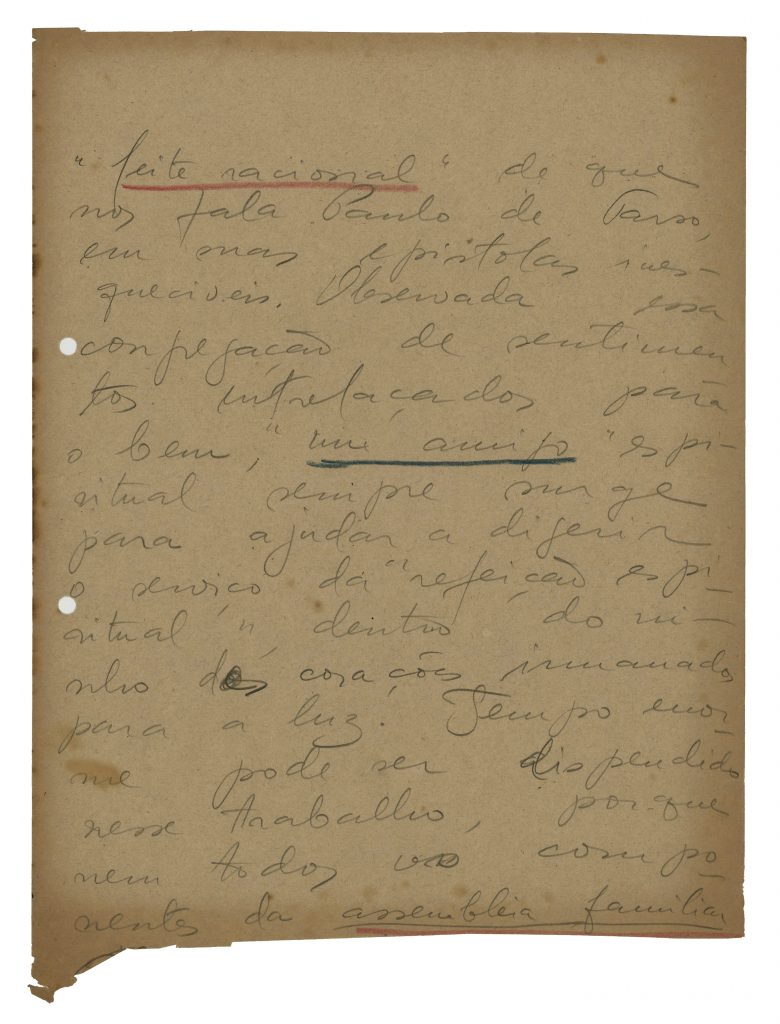 "leite racional" de que
nos fala Paulo de Tarso,
em suas epistolas ines-
queciveis. Observada essa
congregação de sentimen
tos entrelaçados para
o bem, "um amigo" espi-
ritual sempre surge
para ajudar a digerir
o serviço da "refeição espi-
ritual", dentro do ni-
nho dos corações irmanados
para a luz. Tempo enor-
me pode ser dispendido
nesse trabalho, porque
nem todos os compo-
nentes da assembleia familiar